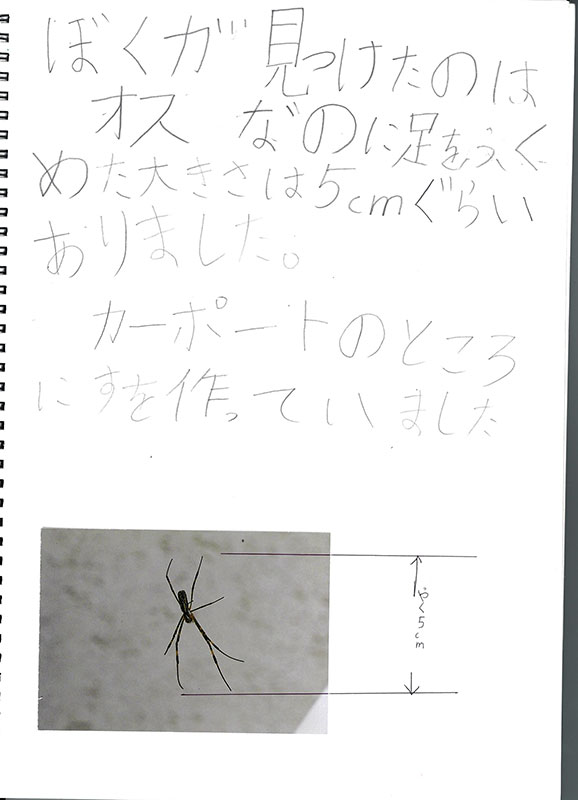 ぼくが見つけたのは
オスなのに足をふく
めた大きさは5cmぐらい
ありました。
カーポートのところ
にすを作っていました
やく5cm